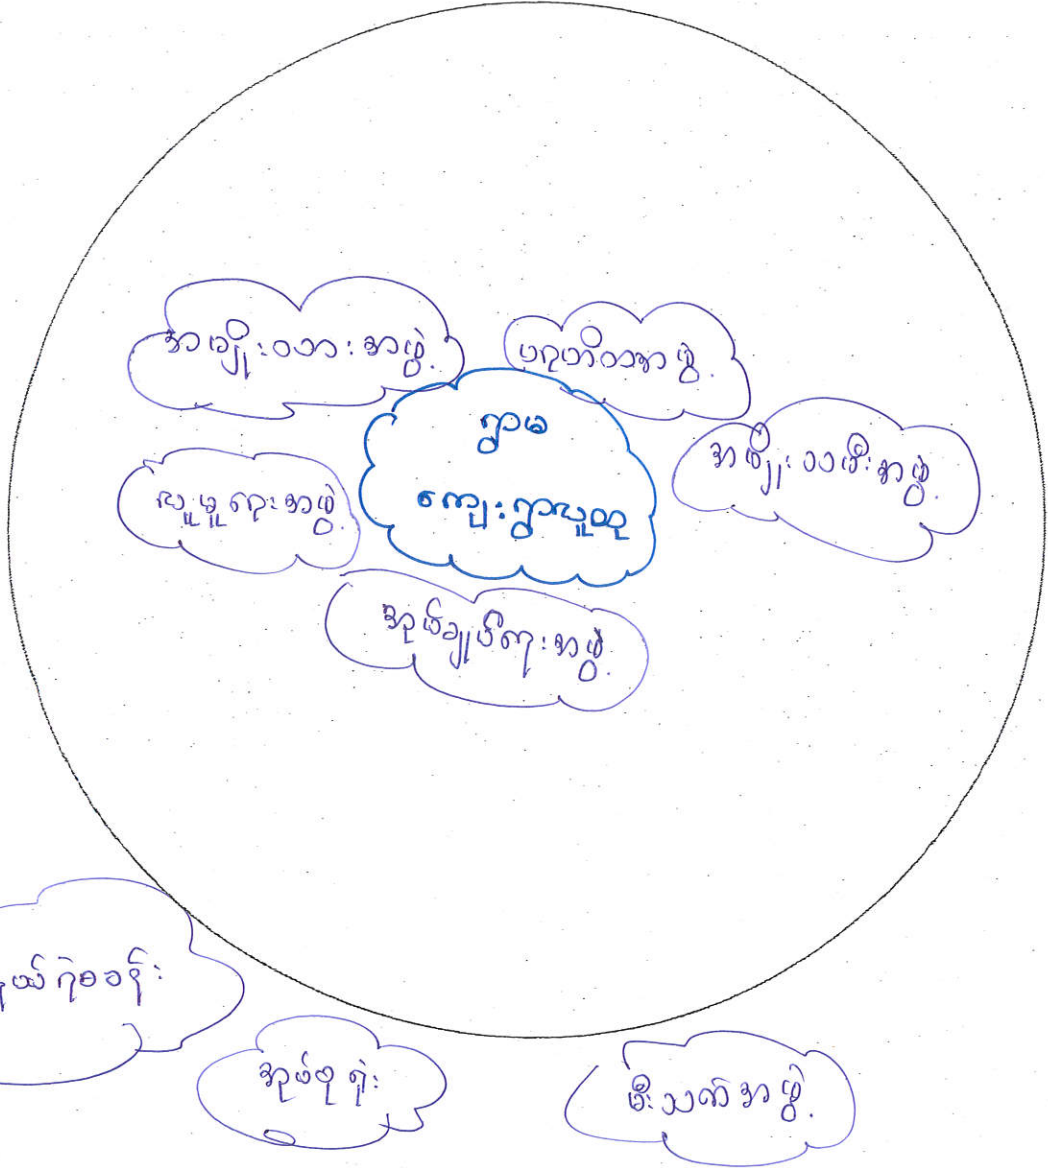 အမျိုးသားအဖွဲ့
ပရဟိတအဖွဲ့
ရွာမ
ကျေးရွာလူထု
အမျိုးသမီးအဖွဲ့
လူမှုရေးအဖွဲ့
အုပ်ချုပ်ရေးအဖွဲ့
ရဲစခန်း
အုပ်စုရုံး
မီးသတ်အဖွဲ့